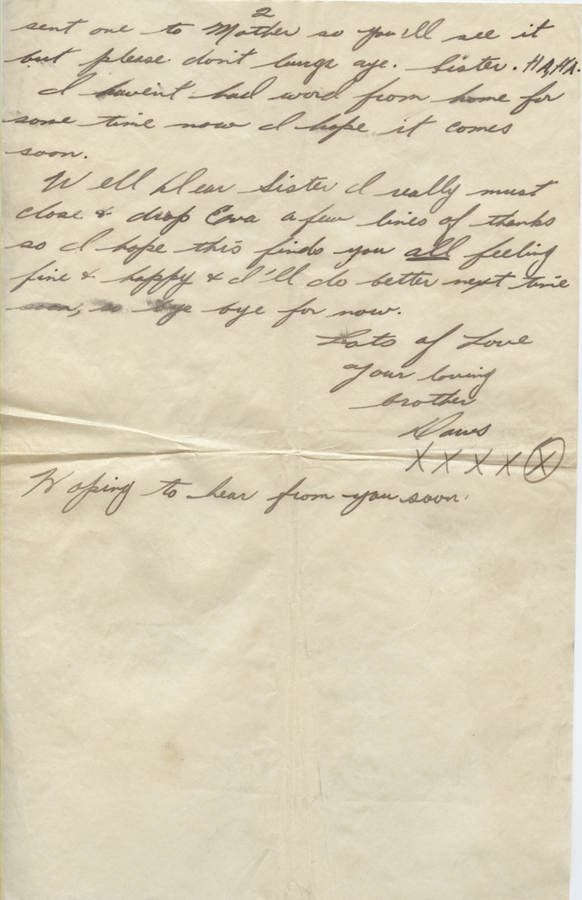 2
sent one to Mother so you'll see it
but please don't laugh aye. Sister. HA, HA.
I haven't had word from home for
some time now I hope it comes
soon.
Well Dear Sister I really must
close & drop Eva a few lines of thanks
so I hope this finds you all feeling
fine & happy & I'll do better next time
so bye bye for now.
Lots of Love
Your loving
brother
X X X X X
Hoping to hear from you soon.